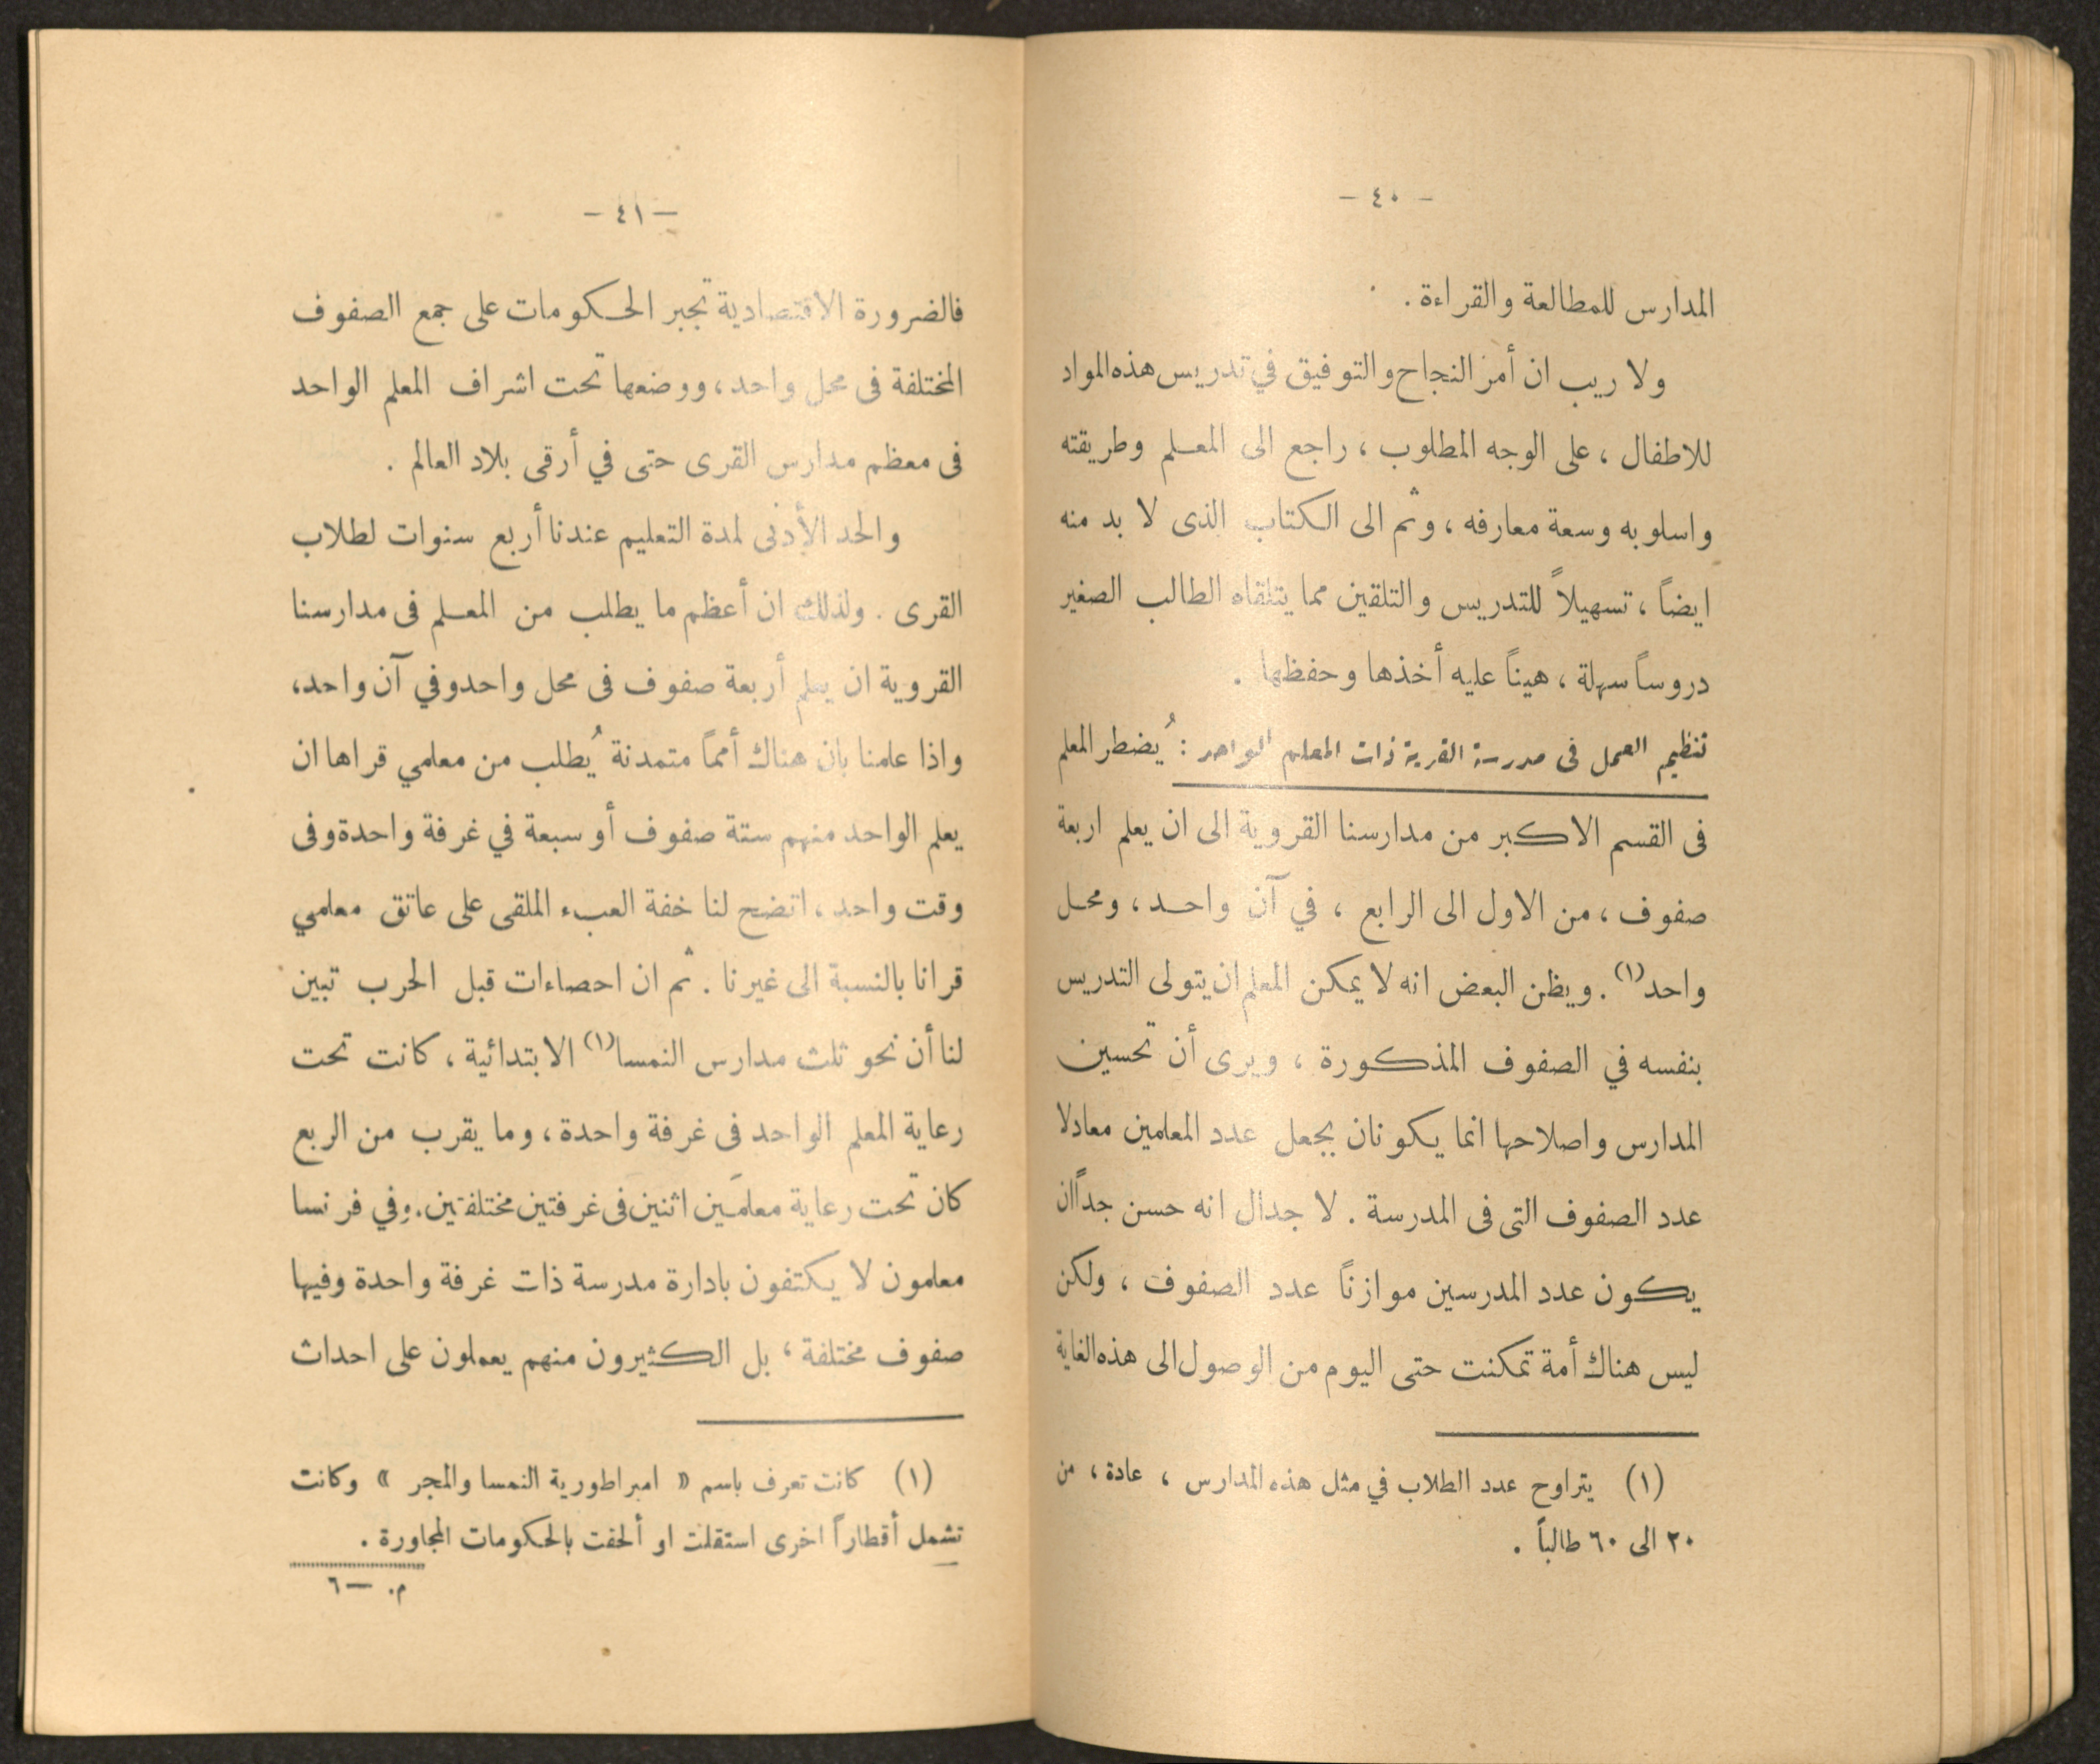 - ٤٠ -
المدارس للمطالعة والقراءة .
ولا ريب ان أمر النجاح والتوفيق في تدريس هذه المواد
للاطفال ، على الوجه المطلوب ، راجع الى المعلم وطريقته
واسلوبه وسعة معارفه ، وثم الى الكتاب الذى لا بد منه
ايضاً ، تسهيلاً للتدريس والتلقين مما يتلقاه الطالب الصغير
دروساً سهلة ، هيناً عليه أخذها وحفظها .
تنظيم العمل فى مدرسة القرية ذات المعلم الواحد : يُضطر المعلم
فى القسم الاكبر من مدارسنا القروية الى ان يعلم اربعة
صفوف ، من الاول الى الرابع ، في آن واحد ، ومحل
واحد (١) . ويظن البعض انه لا يمكن المعلم ان يتولى التدريس
بنفسه في الصفوف المذكورة ، ويرى أن تحسين
المدارس واصلاحها انما يكونان بجعل عدد المعلمين معادلا
عدد الصفوف التى فى المدرسة . لا جدال انه حسن جداً ان
يكون عدد المدرسين موازناً عدد الصفوف ، ولكن
ليس هناك أمة تمكنت حتى اليوم من الوصول الى هذه الغاية
(١) يتراوح عدد الطلاب في مثل هذه المدارس ، عادة ، من
٢٠ الى ٦٠ طالباً .
- ٤١ -
فالضرورة الاقتصادية تجبر الحكومات على جمع الصفوف
المختلفة فى محل واحد ، ووضعها تحت اشراف المعلم الواحد
فى معظم مدارس القرى حتى في أرقى بلاد العالم .
والحد الأدنى لمدة التعليم عندنا أربع سنوات لطلاب
القرى . ولذلك ان أعظم ما يطلب من المعلم فى مدارسنا
القروية ان يعلم أربعة صفوف فى محل واحد وفي آن واحد ،
واذا علمنا بان هناك أمماً متمدنة يُطلب من معلمي قراها ان
يعلم الواحد منهم ستة صفوف أو سبعة في غرفة واحدة وفى
وقت واحد ، اتضح لنا خفة العبء الملقى على عاتق معلمي
قرانا بالنسبة الى غيرنا . ثم ان احصاءات قبل الحرب تبين
لنا أن نحو ثلث مدارس النمسا (١) الابتدائية ، كانت تحت
رعاية المعلم الواحد فى غرفة واحدة ، وما يقرب من الربع
كان تحت رعاية معلمَين اثنين فى غرفتين مختلفتين . وفي فرنسا
معلمون لا يكتفون بادارة مدرسة ذات غرفة واحدة وفيها
صفوف مختلفة ، بل الكثيرون منهم يعملون على احداث
(١) كانت تعرف باسم « امبراطورية النمسا والمجر » وكانت
تشمل أقطاراً اخرى استقلت او ألحقت بالحكومات المجاورة .
م. — ٦